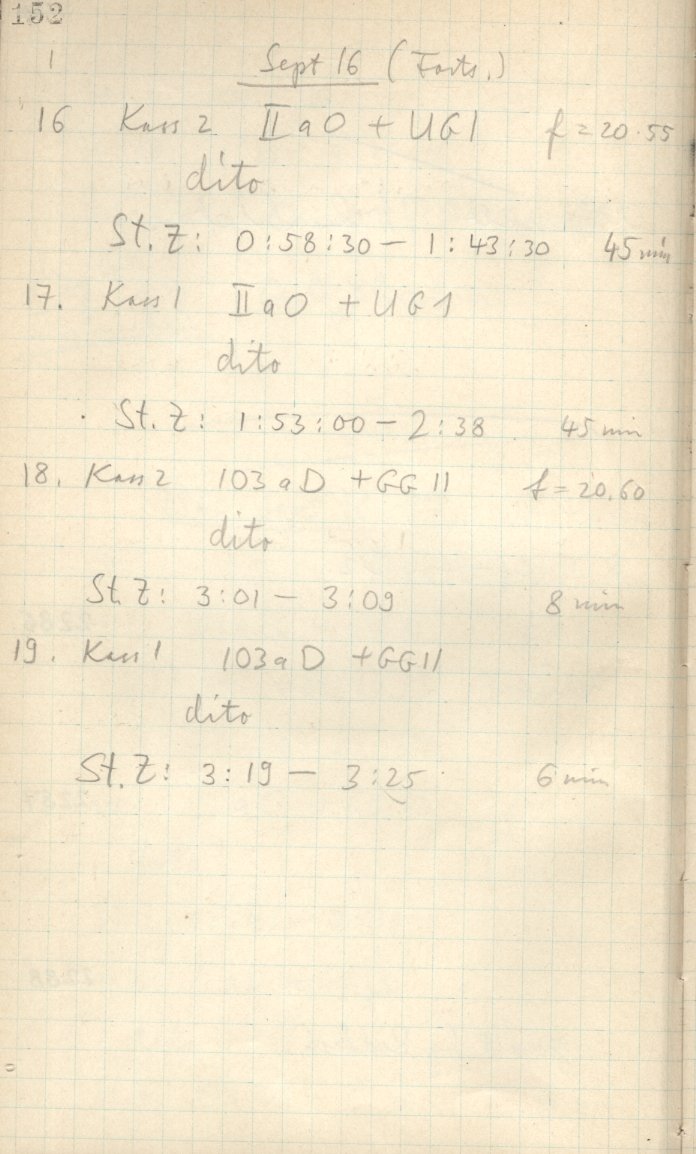 152
1
Sept 16 (Forts.)
16 Kass 2 II a O + UG1 f = 20.55
dito
St. Z: 0:58:30 – 1:43:30 45 min
17. Kass 1 II a O + UG1
dito
St. Z: 1:53:00 – 2:38 45 min
18. Kass 2 103 a D + GG 11 f = 20.60
dito
St. Z: 3:01 – 3:09 8 min
19. Kass 1 103 a D + GG 11
dito
St. Z: 3:19 – 3:25 6 min